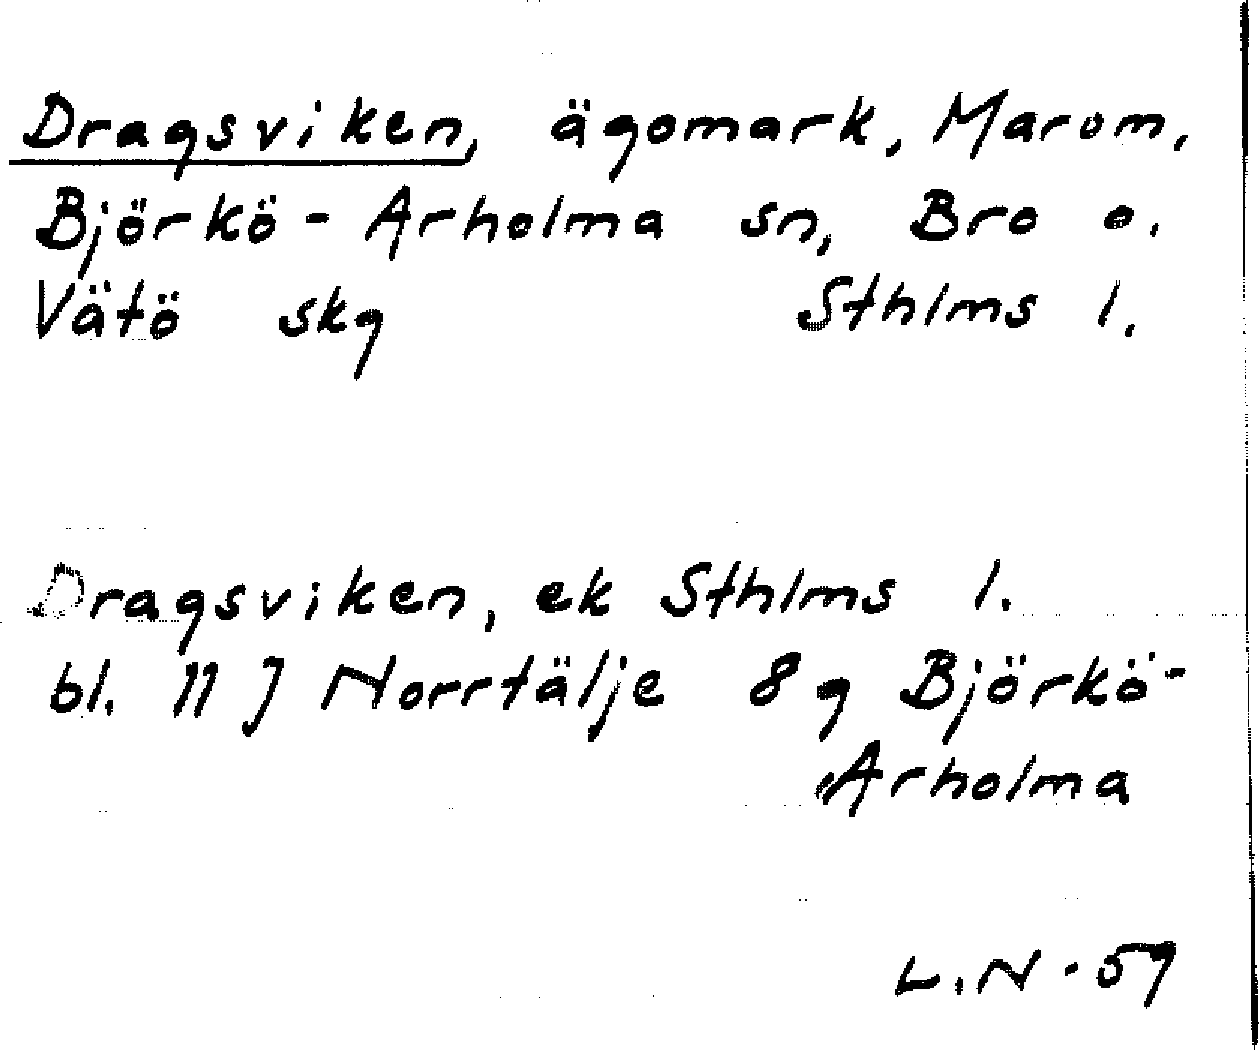 Dragsviken, ägomark, Marom,
Björkö-Arholma sn, Bro o.
Vätö skg Sthlms l.
Dragsviken, ek Sthlms l.
bl. 11 J Norrtälje 8 g Björkö-
Arholma
L.N-59